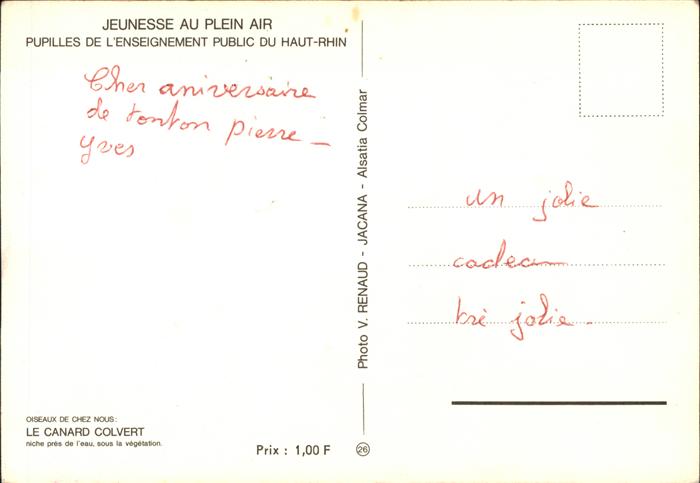 JEUNESSE AU PLEIN AIR
PUPILLES DE L'ENSEIGNEMENT PUBLIC DU HAUT-RHIN
Cher aniversaire
de tonton pierre –
Yves
OISEAUX DE CHEZ NOUS:
LE CANARD COLVERT
niche près de l'eau, sous la végétation.
Prix : 1,00 F
26
Photo V. RENAUD - JACANA - Alsatia Colmar
un jolie
cadeau
trè jolie -